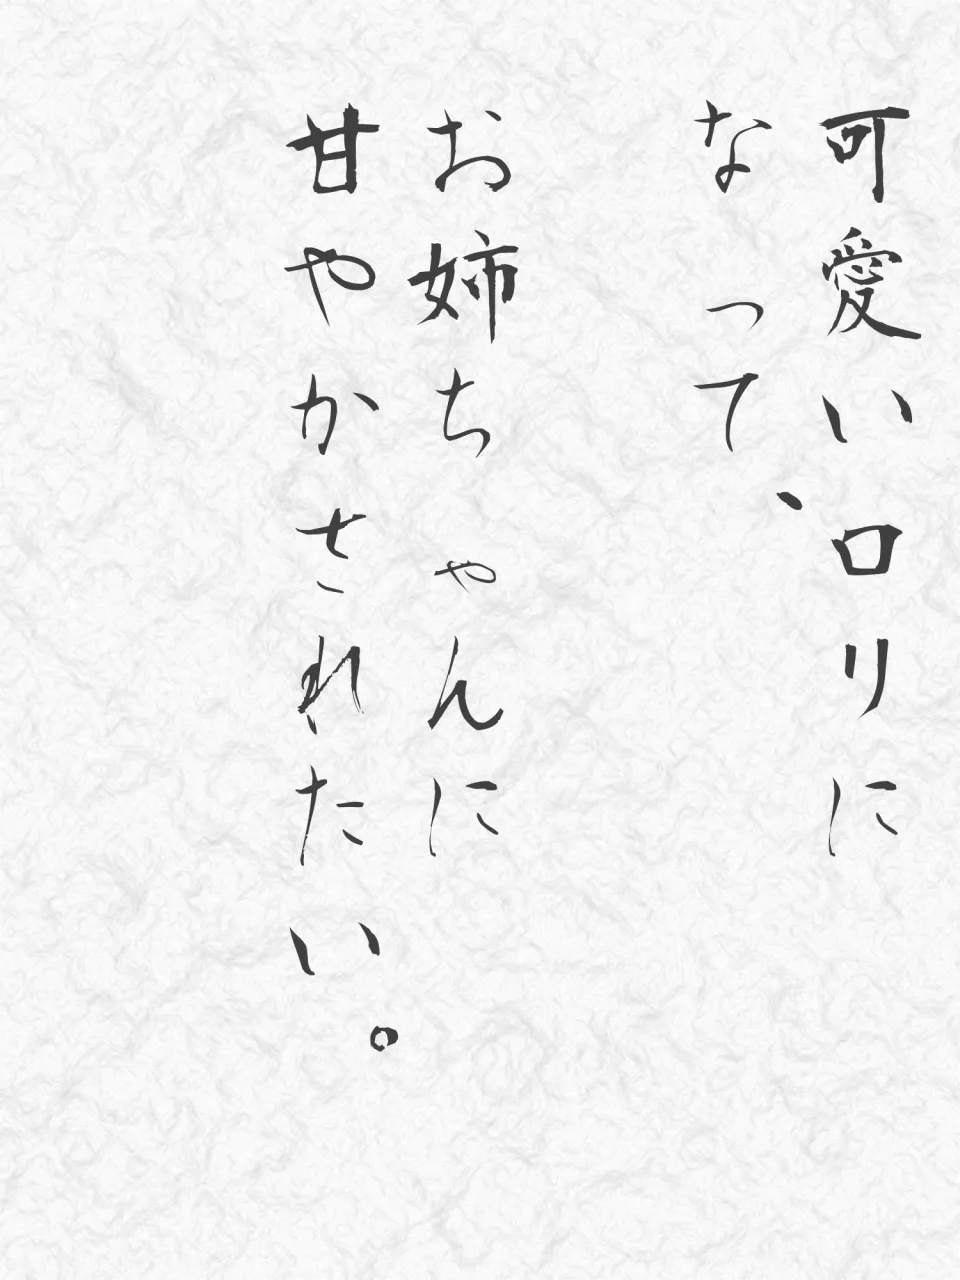 可愛いロリに
なって、
お姉ちゃんに
甘やかされたい。